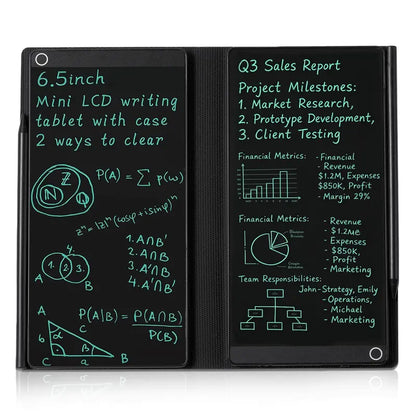 6.5inch
Mini LCD writing
tablet with case
2 ways to clear
ℤ
ℕ
Q
P(A) = ∑ p(w)
zⁿ = |z|ⁿ (cosφ + i sinφ)ⁿ
4.
A 1. 2 3. B
1. A∩B'
2. A∩B
3. A'∩B
4. A'∩B'
P(A|B) = P(A∩B)
P(B)
A
b
α
c
β
C a B
Q3 Sales Report
Project Milestones:
1. Market Research,
2. Prototype Development,
3. Client Testing
Financial Metrics:
- Financial
- Revenue
$1.2M, Expenses
$850K, Profit
- Margin 29%
Financial Metrics:
- Revenue
- $1.2ME
- Expenses
- $850K,
- Profit
- Marketing
Team Responsibilities:
John-Strategy, Emily
-Operations,
- Michael
- Marketing